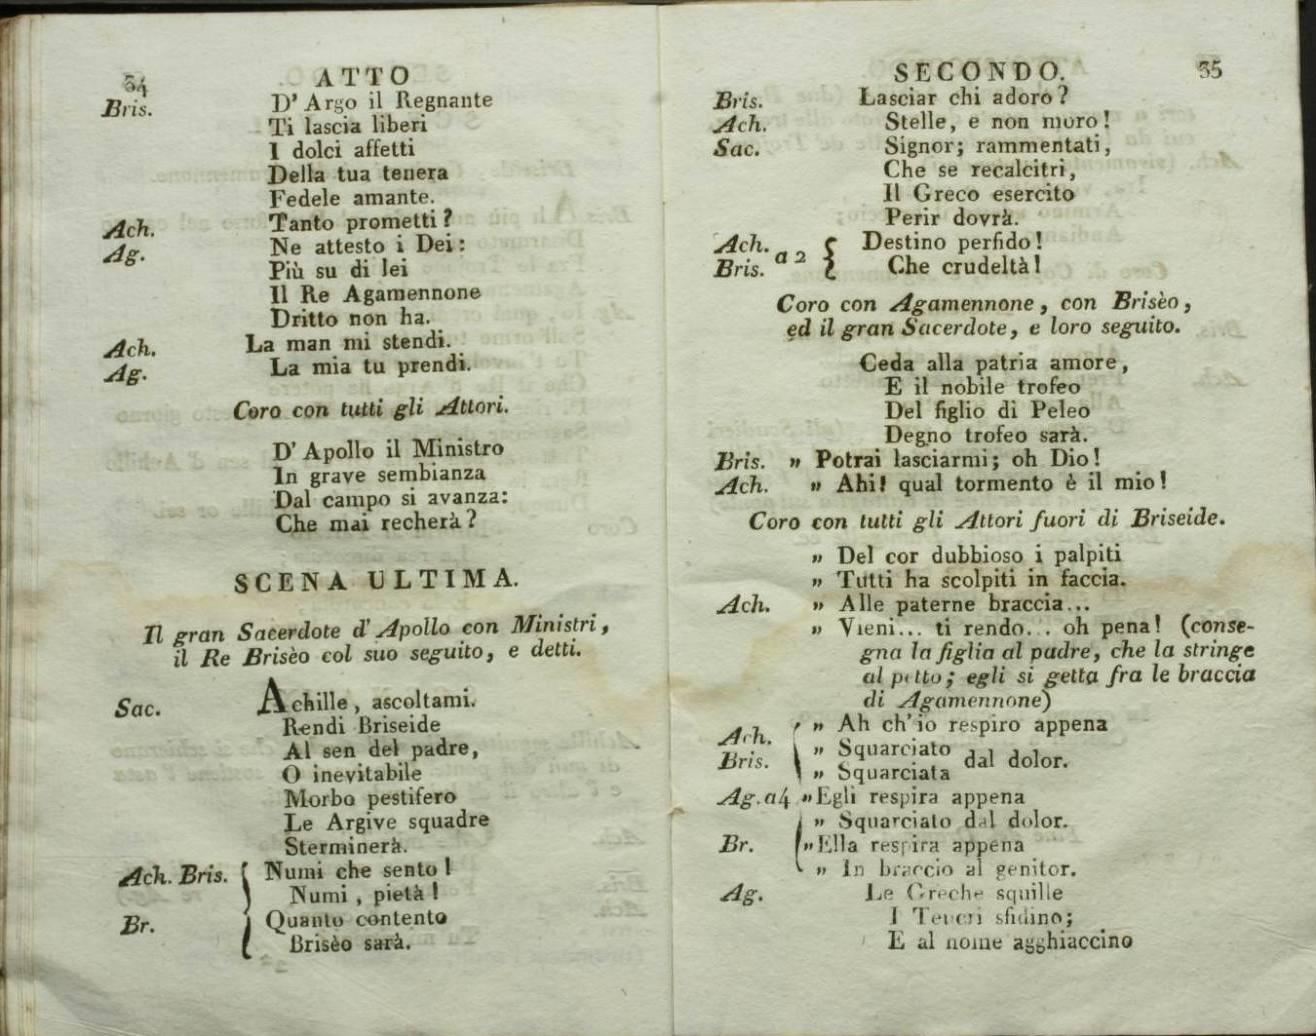 34
ATTO
Bris. D' Argo il Regnante
Ti lascia liberi
I dolci affetti
Della tua tenera
Fedele amante.
Ach. Tanto prometti?
Ag. Ne attesto i Dei:
Più su di lei
Il Re Agamennone
Dritto non ha.
Ach. La man mi stendi.
Ag. La mia tu prendi.
Coro con tutti gli Attori.
D' Apollo il Ministro
In grave sembianza
Dal campo si avanza:
Che mai recherà?
SCENA ULTIMA.
Il gran Sacerdote d' Apollo con Ministri,
il Re Brisèo col suo seguito, e detti.
Sac. Achille, ascoltami.
Rendi Briseide
Al sen del padre,
O inevitabile
Morbo pestifero
Le Argive squadre
Sterminerà.
Ach. Bris. { Numi che sento!
Numi, pietà!
Br. { Quanto contento
Brisèo sarà.
SECONDO.
35
Bris. Lasciar chi adoro?
Ach. Stelle, e non moro!
Sac. Signor; rammentati,
Che se recalcitri,
Il Greco esercito
Perir dovrà.
Ach. a 2 { Destino perfido!
Bris. Che crudeltà!
Coro con Agamennone, con Brisèo,
ed il gran Sacerdote, e loro seguito.
Ceda alla patria amore,
E il nobile trofeo
Del figlio di Peleo
Degno trofeo sarà.
Bris. „ Potrai lasciarmi; oh Dio!
Ach. „ Ahi! qual tormento è il mio!
Coro con tutti gli Attori fuori di Briseide.
„ Del cor dubbioso i palpiti
„ Tutti ha scolpiti in faccia.
Ach. „ Alle paterne braccia...
„ Vieni... ti rendo... oh pena! (conse-
gna la figlia al padre, che la stringe
al petto; egli si getta fra le braccia
di Agamennone)
„ Ah ch' io respiro appena
Ach. „ Squarciato
Bris. „ Squarciata dal dolor.
Ag. a4 „ Egli respira appena
„ Squarciato dal dolor.
Br. „ Ella respira appena
„ In braccio al genitor.
Ag. Le Greche squille
I Teucri sfidino;
E al nome agghiaccino